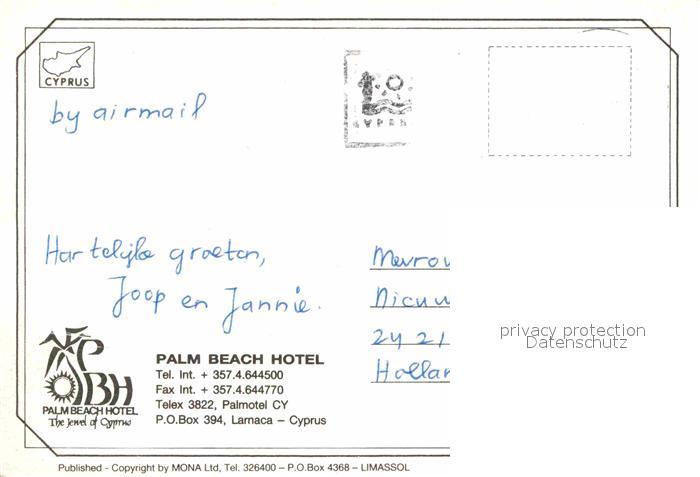 CYPRUS
by airmail
CYPRUS
Hartelijke groeten,
Joop en Jannie.
Mevrou
Nieuw
24 21
Hollan
privacy protection
Datenschutz
PBH
PALM BEACH HOTEL
The Jewel of Cyprus
PALM BEACH HOTEL
Tel. Int. + 357.4.644500
Fax Int. + 357.4.644770
Telex 3822, Palmotel CY
P.O.Box 394, Larnaca – Cyprus
Published - Copyright by MONA Ltd, Tel. 326400 – P.O.Box 4368 – LIMASSOL